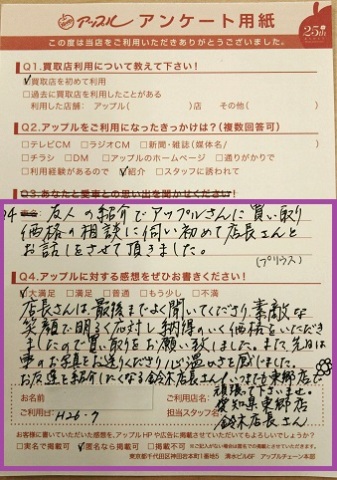 アップル アンケート用紙 25th
この度は当店をご利用いただきありがとうございました。
Q1.買取店利用について教えて下さい!
☑買取店を初めて利用
□過去に買取店を利用したことがある
利用した店舗: アップル( )店 その他( )
Q2.アップルをご利用になったきっかけは?(複数回答可)
□テレビCM □ラジオCM □新聞・雑誌(媒体名/ )
□チラシ □DM □アップルのホームページ □通りがかりで
□利用経験があるので ☑紹介 □スタッフに誘われて
Q3.あなたと愛車との思い出を聞かせください!
友人の紹介でアップルさんに買い取り
価格の相談に伺い初めて店長さんと
お話しをさせて頂きました。
(プリウス)
Q4.アップルに対する感想をぜひお書きください!
☑大満足 □満足 □普通 □もう少し □不満
店長さんは最後までよく聞いてくださり素敵な
笑顔で明るく応対し納得のいく価格をいただき
ましたので買い取りをお願い致しました。また、先日は
車のお写真をお送りくださり心温かさを感じました。
お友達を紹介したくなる鈴木店長さんいつまでも東郷店で
頑張って下さいませ。
お名前 ご利用店名: 愛知県東郷店
ご利用日 H26-9 担当スタッフ名: 鈴木店長さん
お客様に書いていただいた感想を、アップルHPや広告に掲載させていただいてもよろしいでしょうか?
□実名で掲載可 ☑匿名なら掲載可 □掲載不可
東京都千代田区神田岩本町1番地5 清水ビル6F アップルチェーン本部